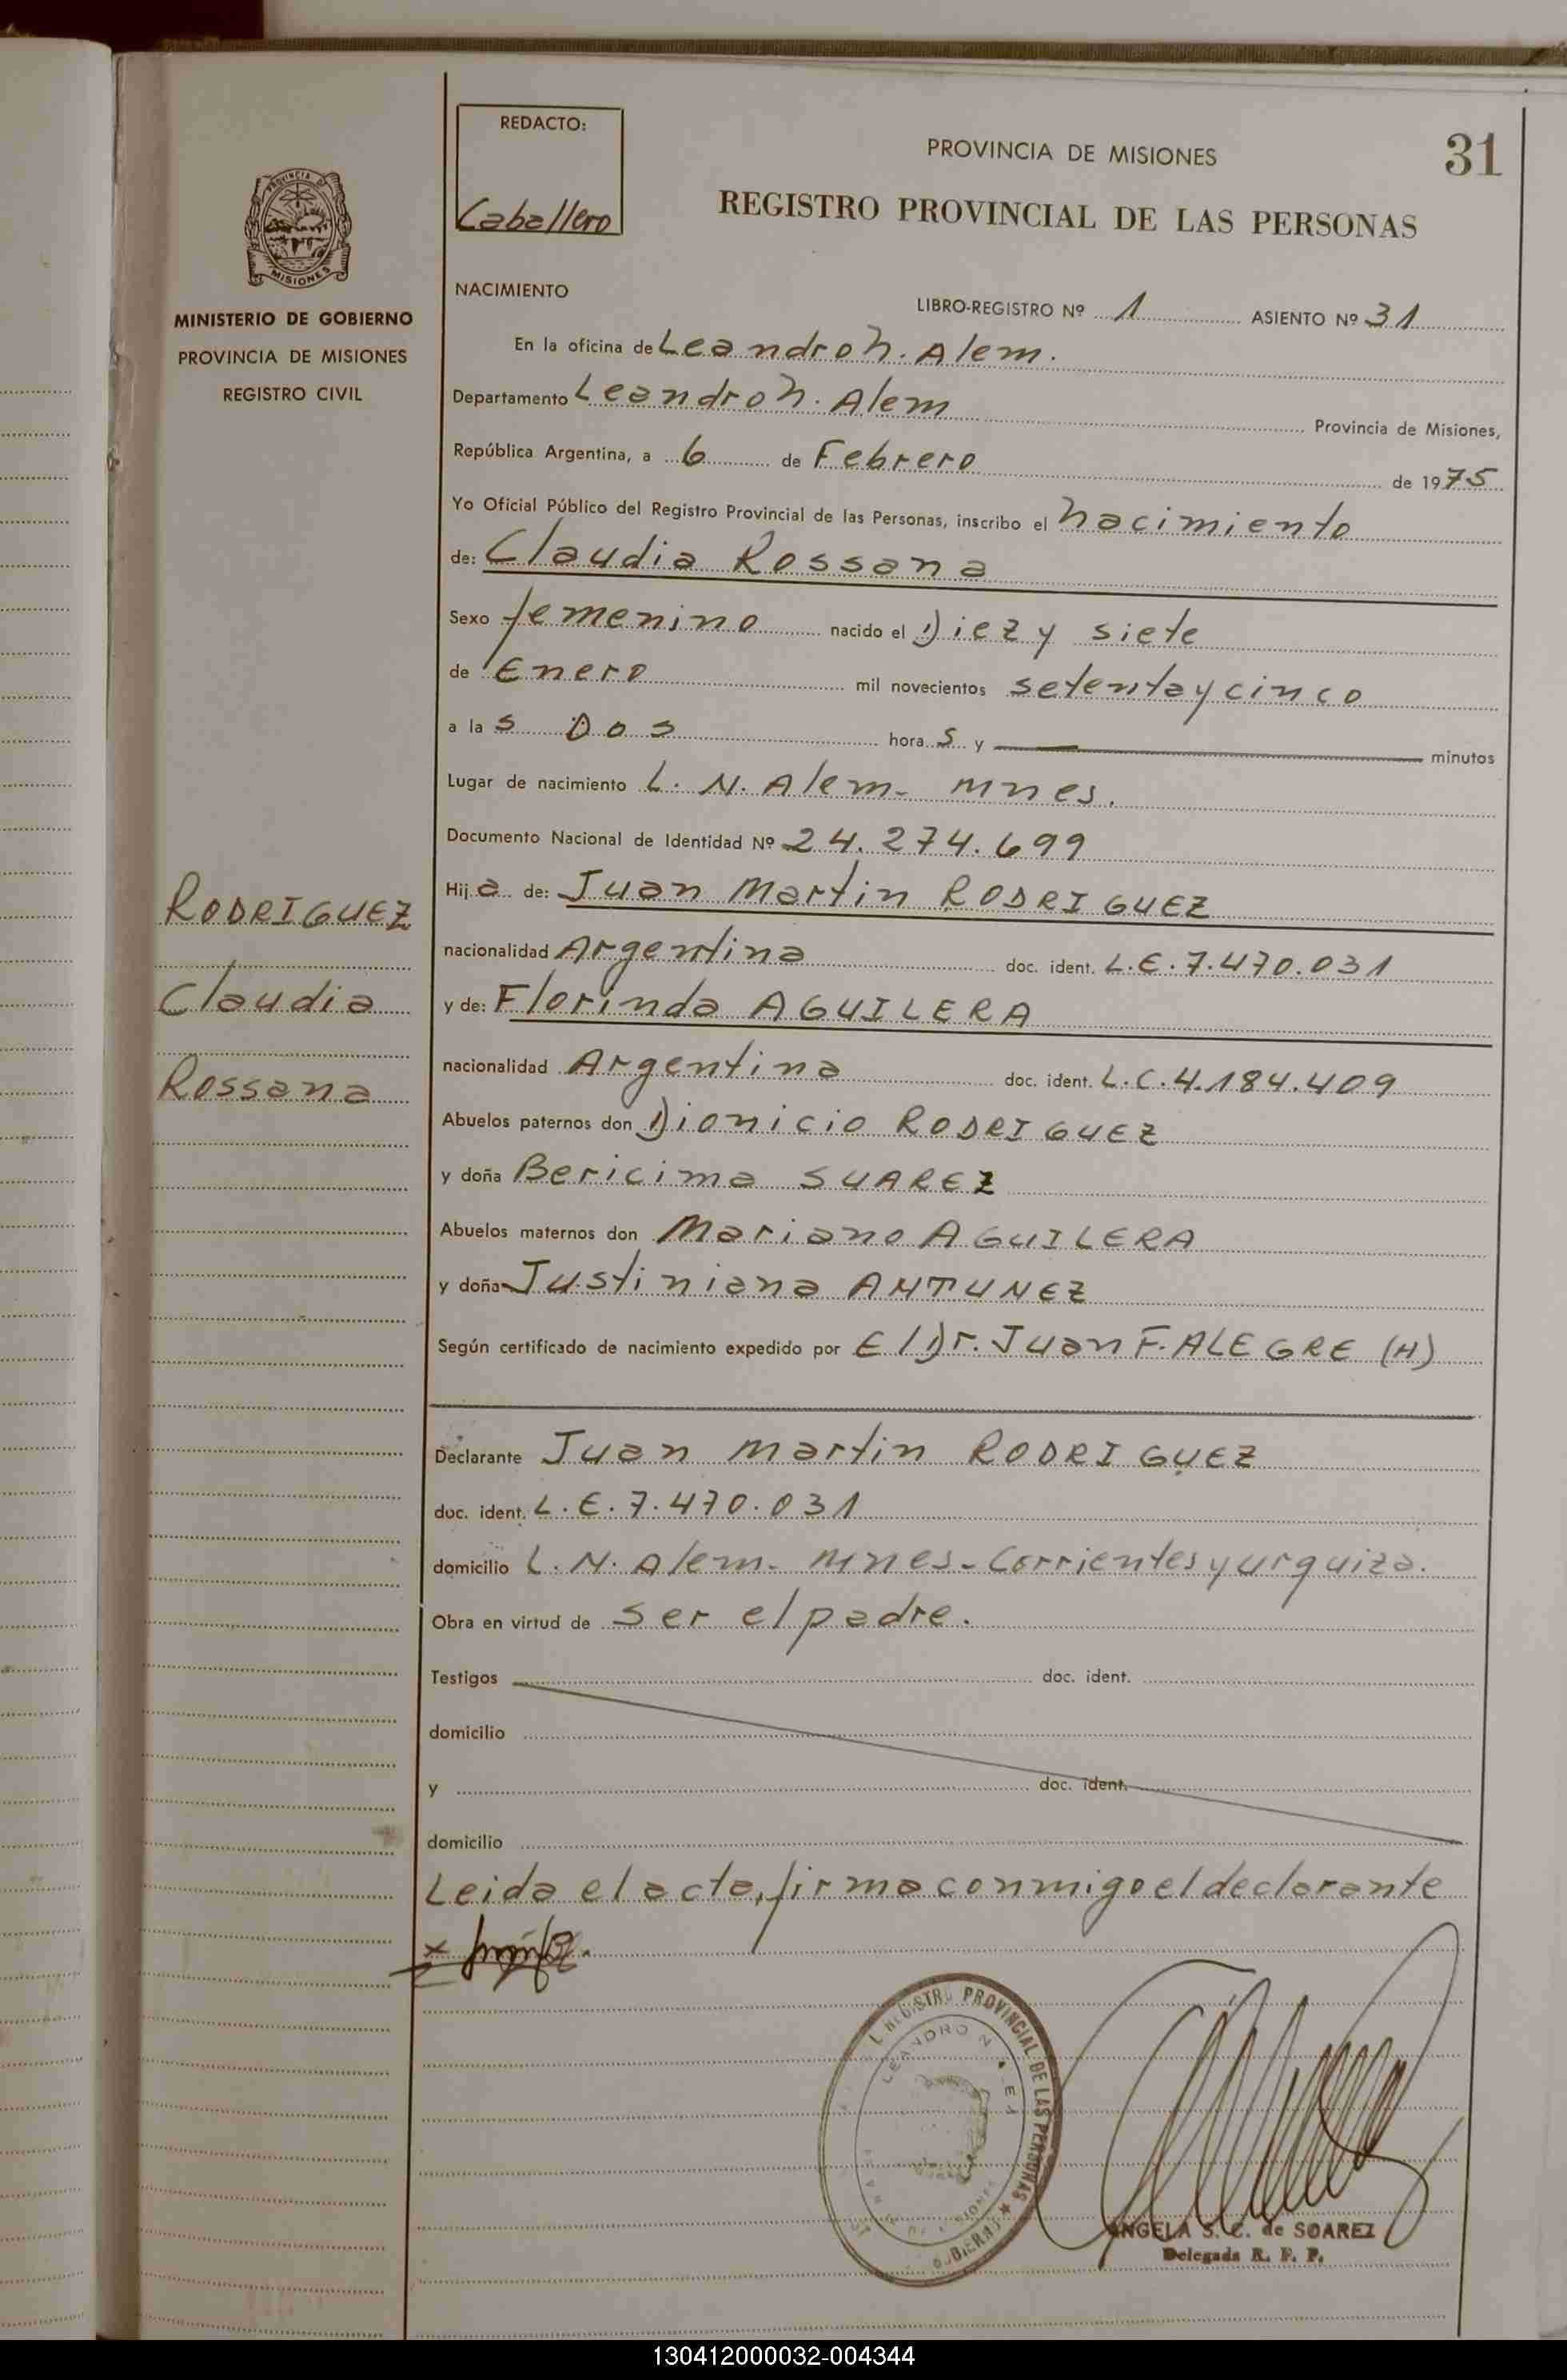 REDACTO:
Caballero
PROVINCIA DE MISIONES
31
REGISTRO PROVINCIAL DE LAS PERSONAS
PROVINCIA D
MISIONES
MINISTERIO DE GOBIERNO
PROVINCIA DE MISIONES
REGISTRO CIVIL
NACIMIENTO
LIBRO-REGISTRO Nº 1 ASIENTO Nº 31
En la oficina de Leandro N. Alem.
Departamento Leandro N. Alem Provincia de Misiones,
República Argentina, a 6 de Febrero de 1975
Yo Oficial Público del Registro Provincial de las Personas, inscribo el nacimiento
de: Claudia Rossana
Sexo femenino nacido el Diez y siete
de Enero mil novecientos setenta y cinco
a las Dos horas y — minutos
Lugar de nacimiento L. N. Alem - Mnes.
Documento Nacional de Identidad Nº 24.274.699
RODRIGUEZ
Claudia
Rossana
Hija de: Juan Martin RODRIGUEZ
nacionalidad Argentina doc. ident. L.E. 7.470.031
y de: Florinda AGUILERA
nacionalidad Argentina doc. ident. L.C. 4.184.409
Abuelos paternos don Dionicio RODRIGUEZ
y doña Bericima SUAREZ
Abuelos maternos don Mariano AGUILERA
y doña Justiniana ANTUNEZ
Según certificado de nacimiento expedido por El Dr. Juan F. ALEGRE (H)
Declarante Juan Martin RODRIGUEZ
doc. ident. L.E. 7.470.031
domicilio L. N. Alem - Mnes - Corrientes y urquiza.
Obra en virtud de ser el padre.
Testigos doc. ident.
domicilio
y doc. ident.
domicilio
Leida el acta, firma conmigo el declarante
REGISTRO PROVINCIAL DE LAS PERSONAS
LEANDRO N
ANGELA S. C. de SOAREZ
Delegada R. P. P.
130412000032-004344